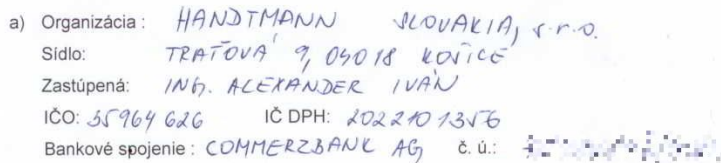 a) Organizácia : HANDTMANN SLOVAKIA, s.r.o.
Sídlo: TRAŤOVÁ 9, 04018 KOŠICE
Zastúpená: ING. ALEXANDER IVÁN
IČO: 35964626 IČ DPH: 2022101356
Bankové spojenie : COMMERZBANK AG č. ú.: